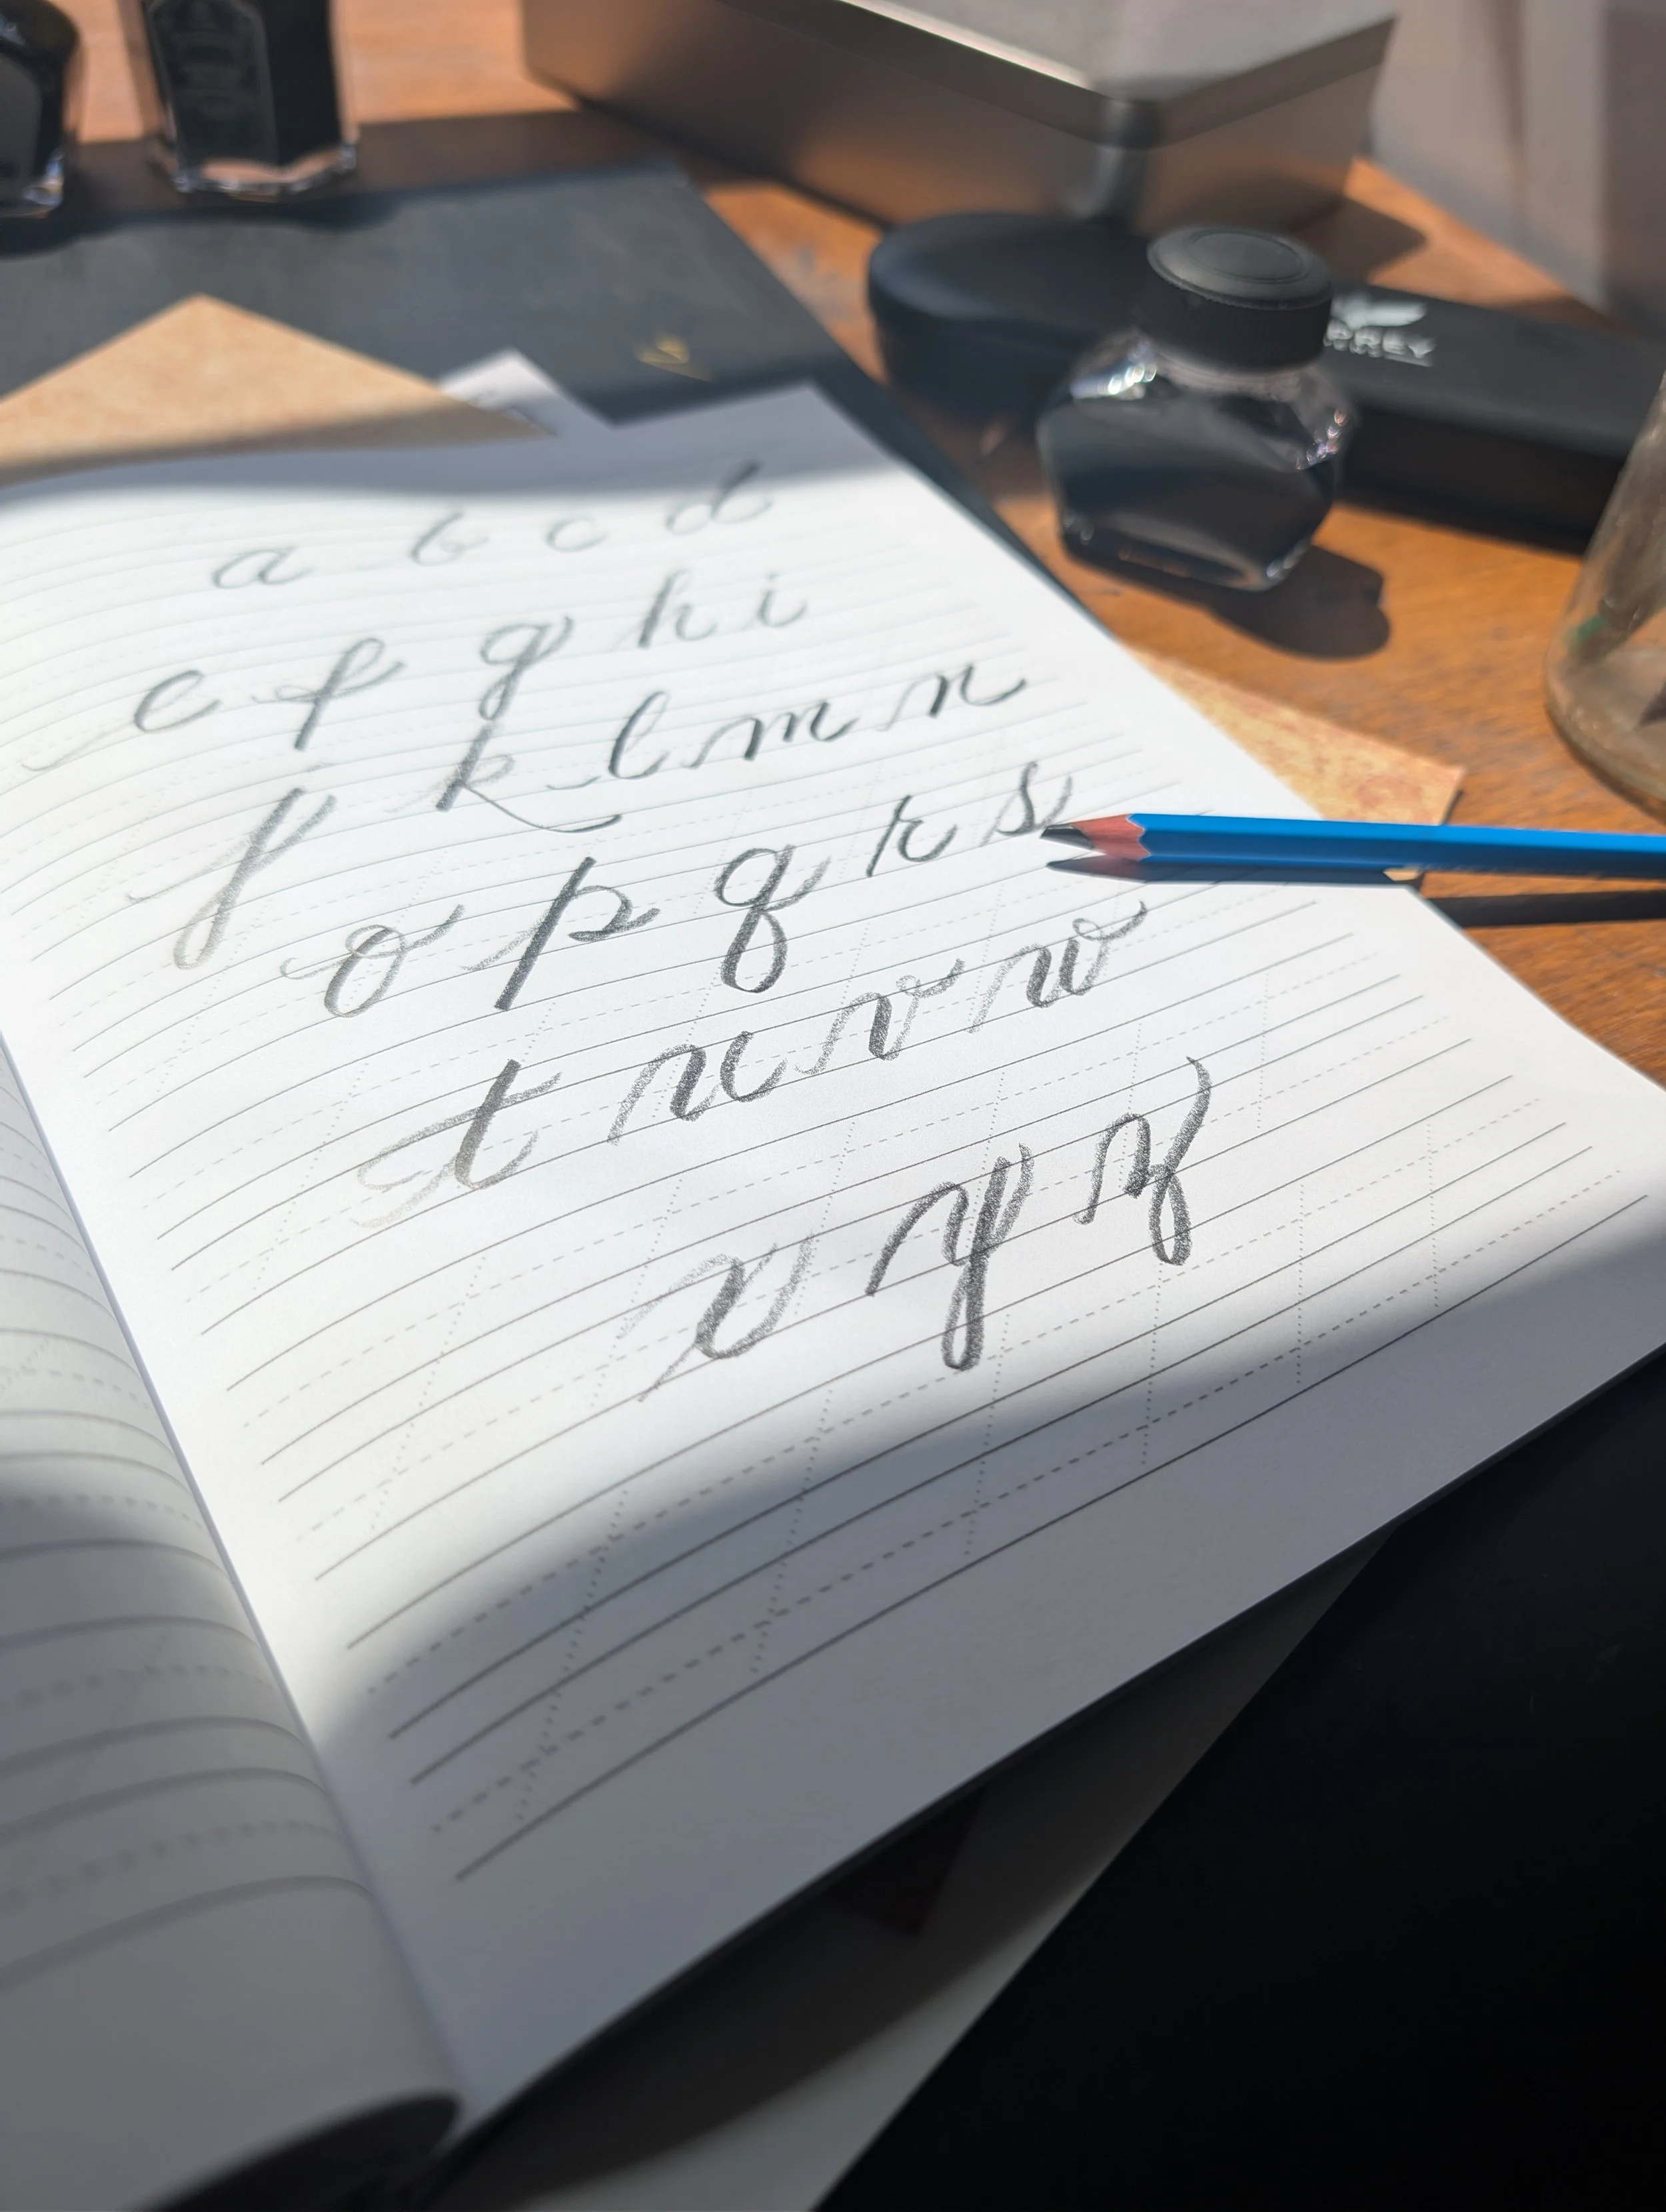 a b c d
e f g h i
j k l m n
o p q r s
t u v w
x y z